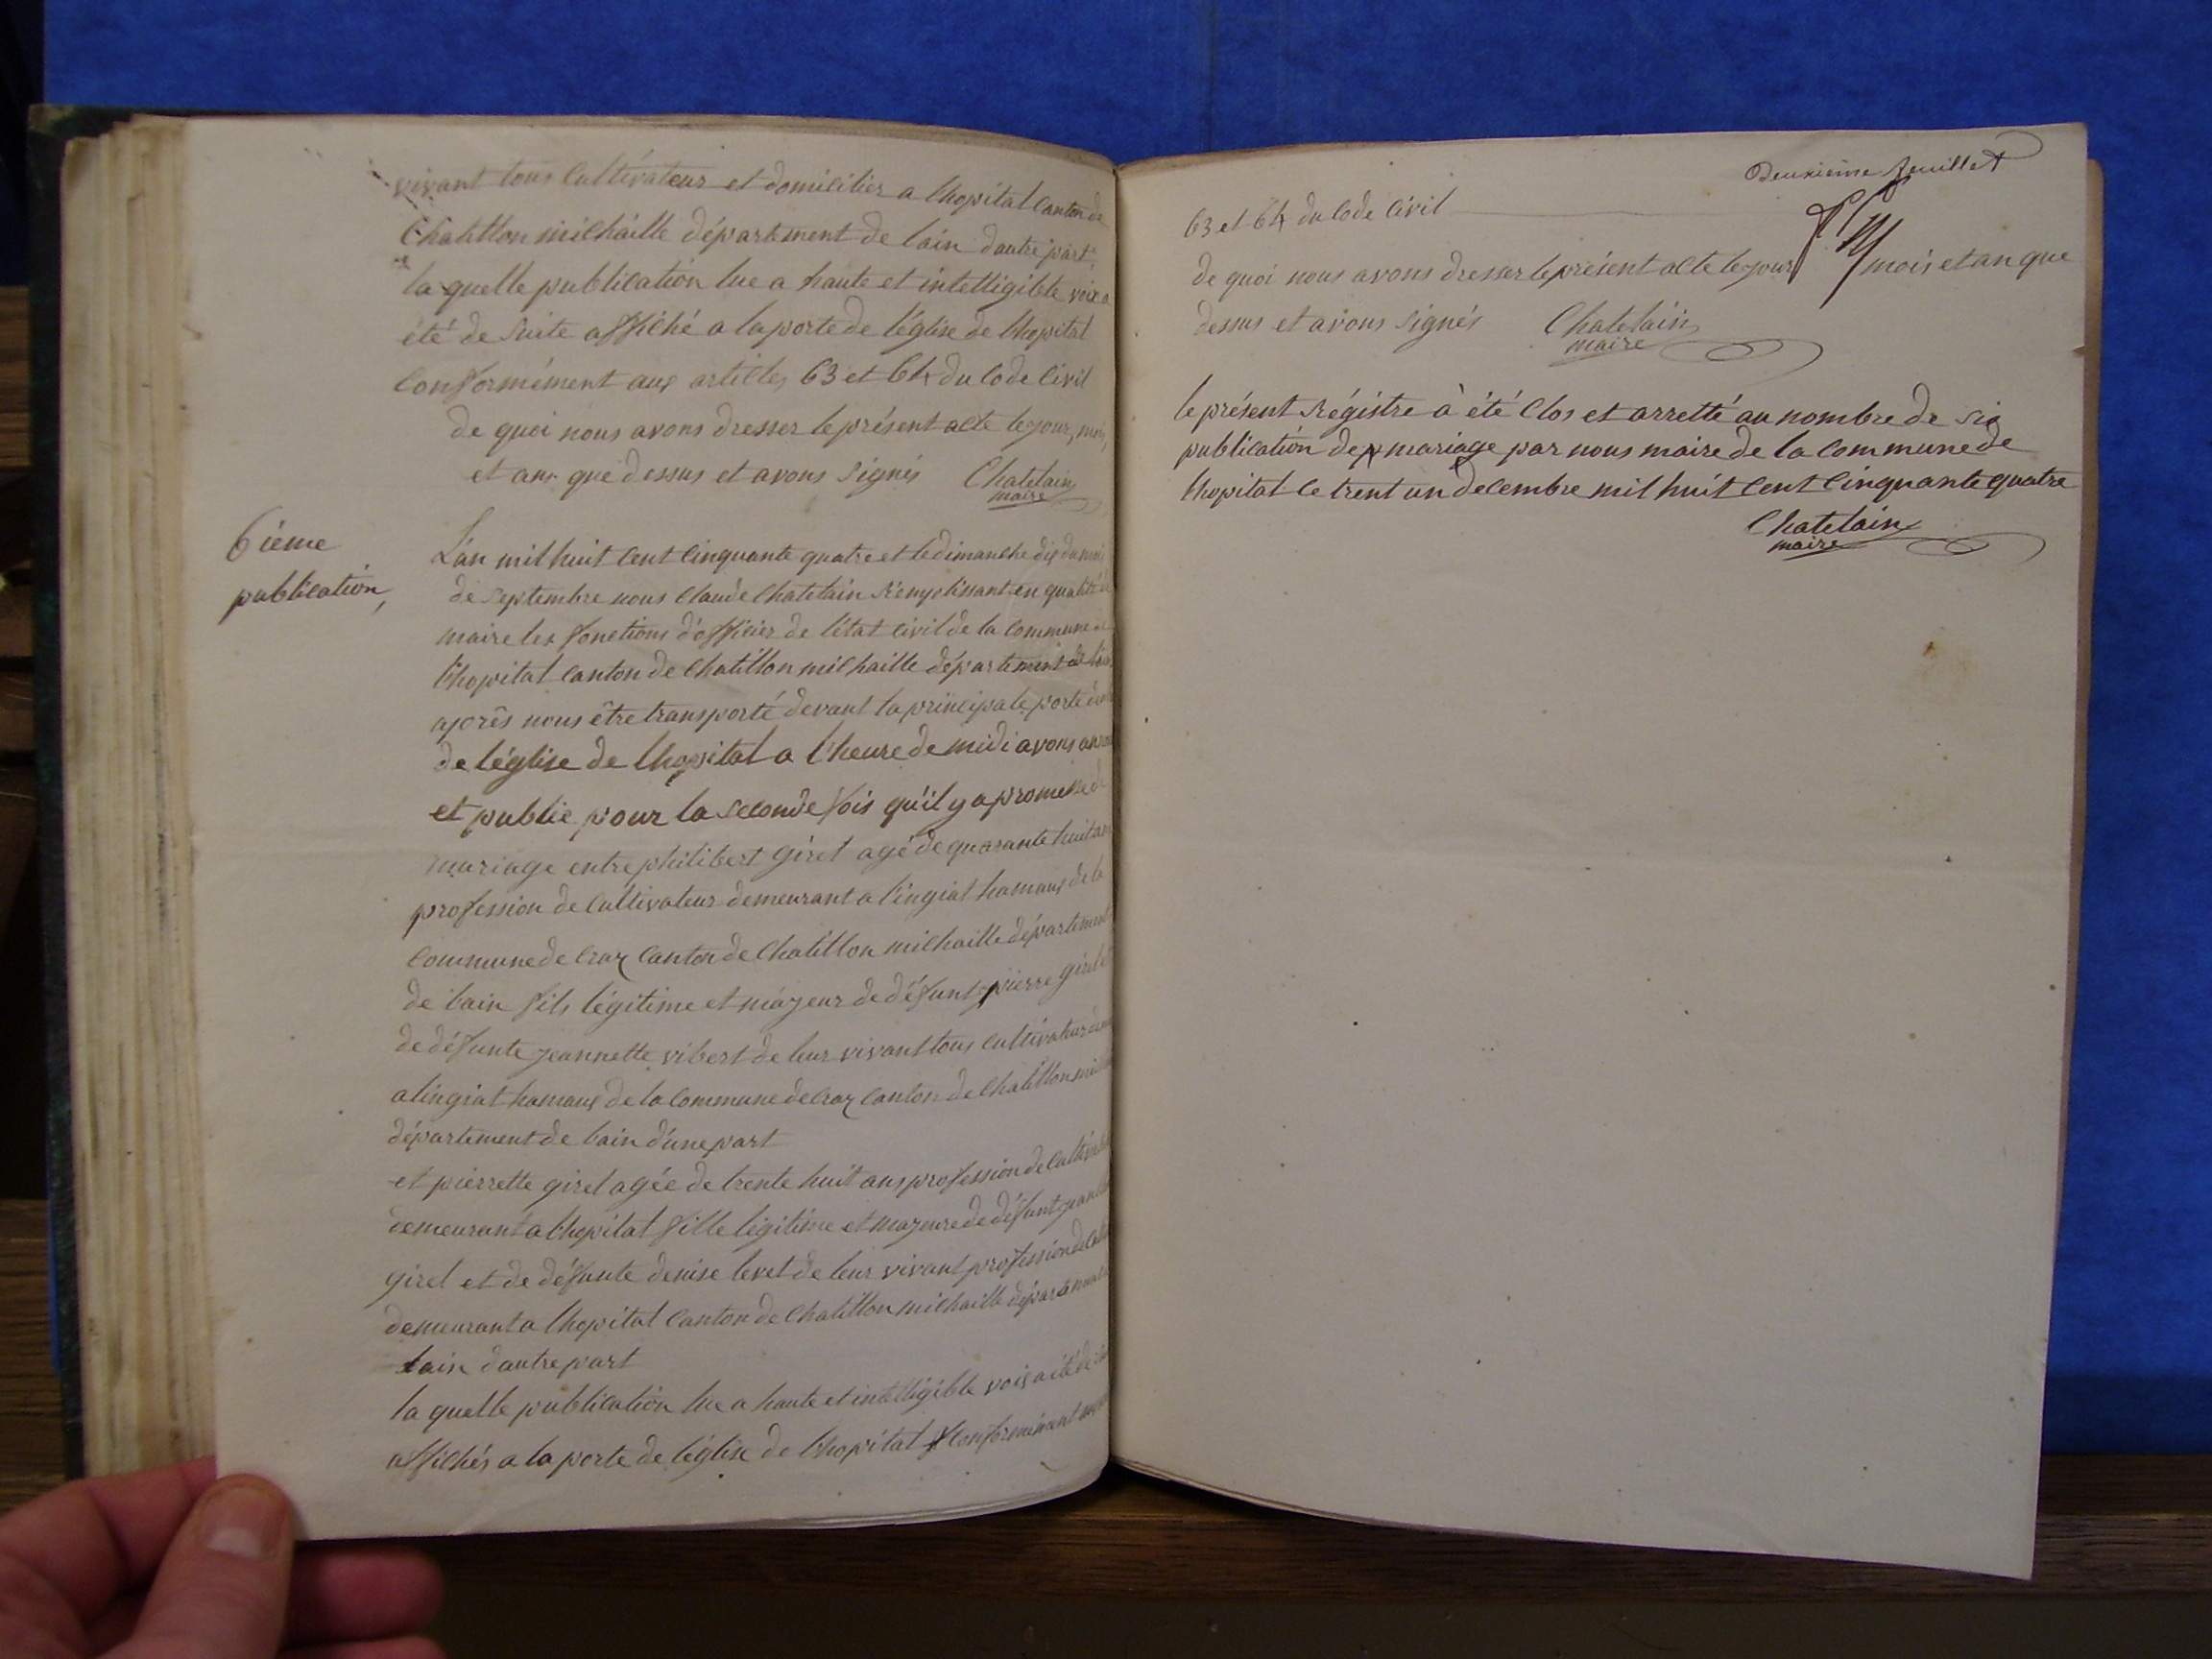 vivant tous cultivateur et domicilier a lhopital canton de
Chatillon michaille département de lain dautre part
la quelle publication lue a haute et intelligible voix a
été de suite affiché a la porte de léglise de lhopital
Conformément aux articles 63 et 64 du code Civil
de quoi nous avons dresser le présent acte le jour, mois,
et an que dessus et avons signés Chatelain
maire
6ième
publication,
L'an mil huit cent cinquante quatre et le dimanche dix du mois
de septembre nous Claude Chatelain remplissant en qualité de
maire les fonctions d'officier de l'état civil de la commune de
lhopital canton de Chatillon michaille département de lain
après nous être transporté devant la principale porte
de léglise de lhopital a l'heure de midi avons
et publié pour la seconde fois qu'il y a promesse de
mariage entre philibert Girel agé de quarante huit ans
profession de cultivateur demeurant a lingiat hamaux de la
commune de craz canton de Chatillon michaille département
de lain fils légitime et majeur de défunt pierre girel et
de défunte jeannette vibert de leur vivant tous cultivateur
a lingiat hamaux de la commune de craz canton de Chatillon
département de lain d'une part
et pierrette girel agée de trente huit ans profession de
demeurant a lhopital fille légitime et majeure de défunt
girel et de défunte denise levet de leur vivant profession de
demeurant a lhopital canton de Chatillon michaille département
lain dautre part
la quelle publication lue a haute et intelligible voix a été de
affichés a la porte de léglise de lhopital Conformément
Deuxième feuillet
63 et 64 du code Civil
de quoi nous avons dresser le présent acte le jour mois et an que
dessus et avons signés Chatelain
maire
le présent Régistre à été Clos et arretté au nombre de six
publication de mariage par nous maire de la commune de
lhopital le trent un decembre mil huit cent cinquante quatre
Chatelain
maire